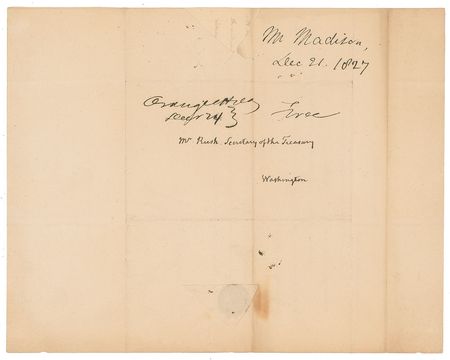 Mr Madison,
Dec 21. 1827
Orange CHVa
Decr 24
Free
Mr Rush Secretary of the Treasury
Washington